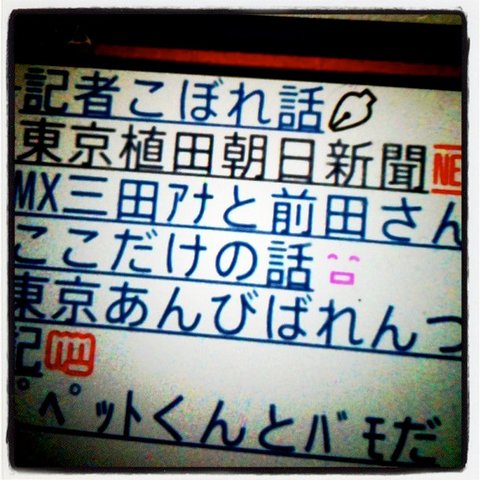 記者こぼれ話
東京植田朝日新聞NE
MX三田ｱﾅと前田さん
ここだけの話
東京あんびばれんつ
記
ﾟﾍﾟｯﾄくんとﾊﾞﾓだ